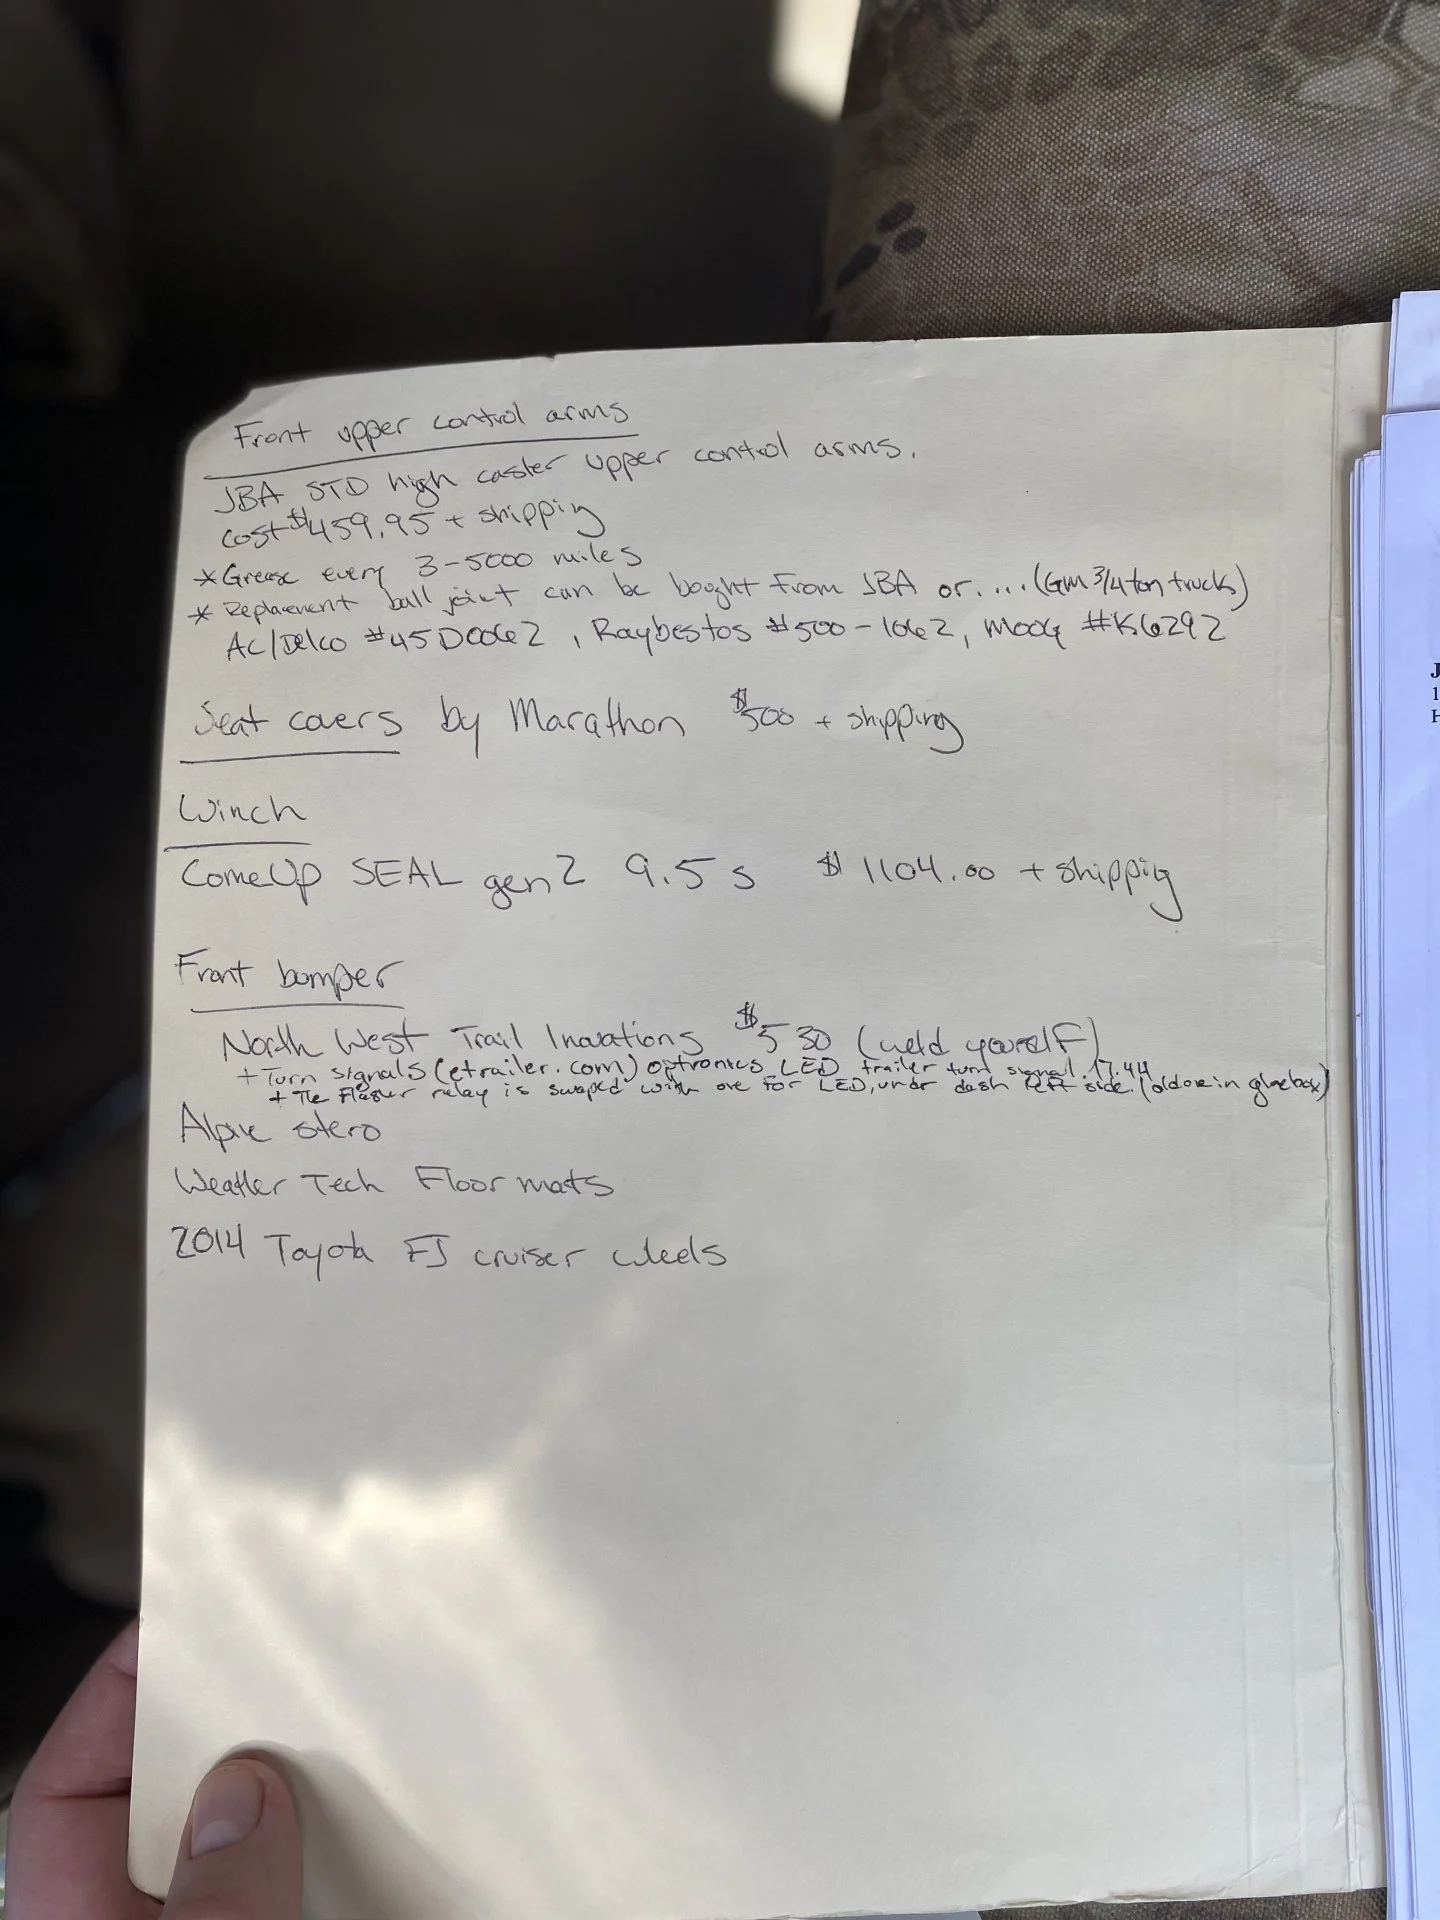 Front upper control arms
JBA STD high caster upper control arms.
Cost $459.95 + shipping
* Grease every 3-5000 miles
* Replacement ball joint can be bought from JBA or.... (GM 3/4 ton trucks)
AC/Delco #45D0062, Raybestos #500-1062, MOOG #K6292
Seat covers by Marathon $500 + shipping
Winch
ComeUp SEAL gen2 9.5 s $1104.00 + shipping
Front bumper
North West Trail Inovations $530 (weld yourself)
+ Turn signals (etrailer.com) optronics LED trailer turn signal. 17.44
+ The Flasher relay is swaped with one for LED, under dash left side. (old one in glovebox)
Alpine stero
Weather Tech Floor mats
2014 Toyota FJ cruiser wheels
J
1
H